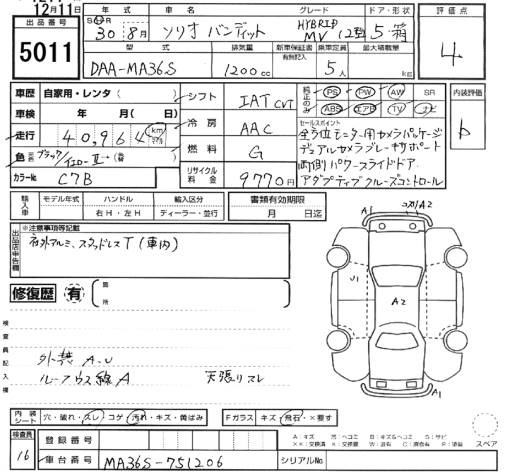 12月11日
出品番号
5011
年式
車名
グレード
ドア・形状
評価点
30年 8月
ソリオ バンディット
HYBRID
MV
5 箱
4
型式
排気量
新車保証書
有無記入
乗車定員
最大積載量
DAA-MA36S
1200cc
5人
kg
車歴 自家用・レンタ ( )
シフト IAT CVT
純正のみ
PS PW AW SR
ABS エアB TV ナビ
内装評価
b
車検 年 月( 日)
冷房 AAC
セールスポイント
全方位モニター用カメラパッケージ
走行 40,964 km
デュアルカメラブレーキサポート
燃料 G
両側パワースライドドア
色 ブラック/
カラーNo. C7B
リサイクル料金 9770円
アダプティブクルーズコントロール
輸入車
モデル年式
ハンドル
右H・左H
輸入区分
ディーラー・並行
書類有効期限
月 日迄
A1
A2
出品店申告欄
※注意事項等記載
社外アルミ、スタッドレスT(車内)
修復歴 有
箇所
U1
A2
A1
検査員記入欄
外装 A.U
A
天張りスレ
内装シート
穴・破れ・スレ・コゲ・汚れ・キズ・黄ばみ
Fガラス
キズ・飛石・×要す
スペア
検査員
16
登録番号
車台番号 MA36S-751206
シリアルNo.